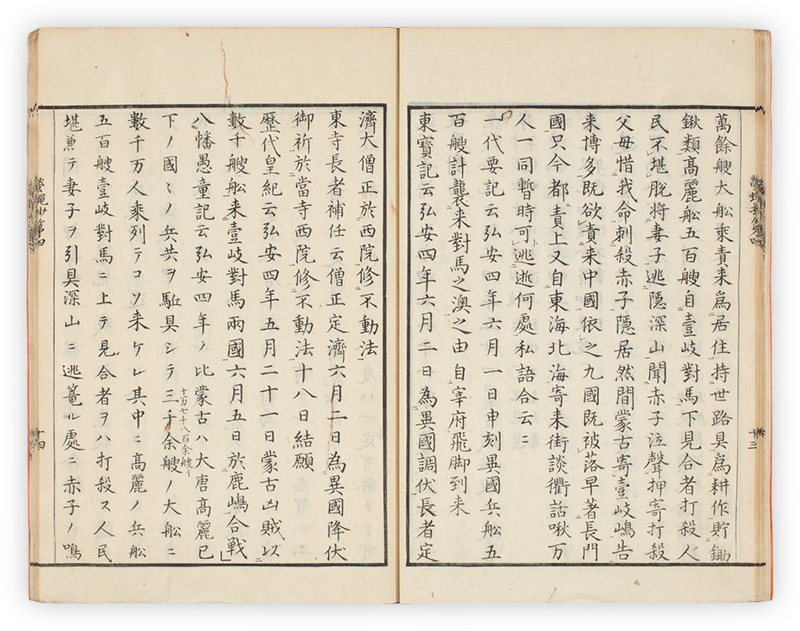 萬餘艘大舩乗責来為居住持世路具為耕作貯鋤
鍬類高麗舩五百艘自壹岐對馬下見合者打殺人
民不堪脱將妻子逃隠深山聞赤子泣聲押寄打殺
父母惜我命刺殺赤子隠居然間蒙古寄壹岐嶋告
来博多既欲責来中國依之九國既被落早著長門
國只今都責上又自東海北海寄来街談衢話啾万
人一同暫時可逃遊何處私語合云〻
一代要記云弘安四年六月一日申刻異國兵舩五
百艘計襲来對馬之澳之由自宰府飛脚到来
東寳記云弘安四年六月二日為異國調伏長者定
十三
濟大僧正於西院修不動法
東寺長者補任云僧正定濟六月二日為異國降伏
御祈於當寺西院修不動法十八日結願
歴代皇紀云弘安四年五月二十一日蒙古凶賊以
數千艘舩来壹岐對馬兩國六月五日於鹿嶋合戰
八幡愚童記云弘安四年ノ比蒙古ハ大唐髙麗已
下ノ國〻ノ兵共ヲ駈具シテ三千余艘ノ大舩ニ
十万七千八百余艘イ
數千万人乗列テコソ来ケレ其中ニ髙麗ノ兵舩
五百艘壹岐對馬ニ上テ見合者ヲハ打殺ス人民
堪兼テ妻子ヲ引具深山ニ逃篭ル處ニ赤子ノ鳴
蠅抄第四
十四